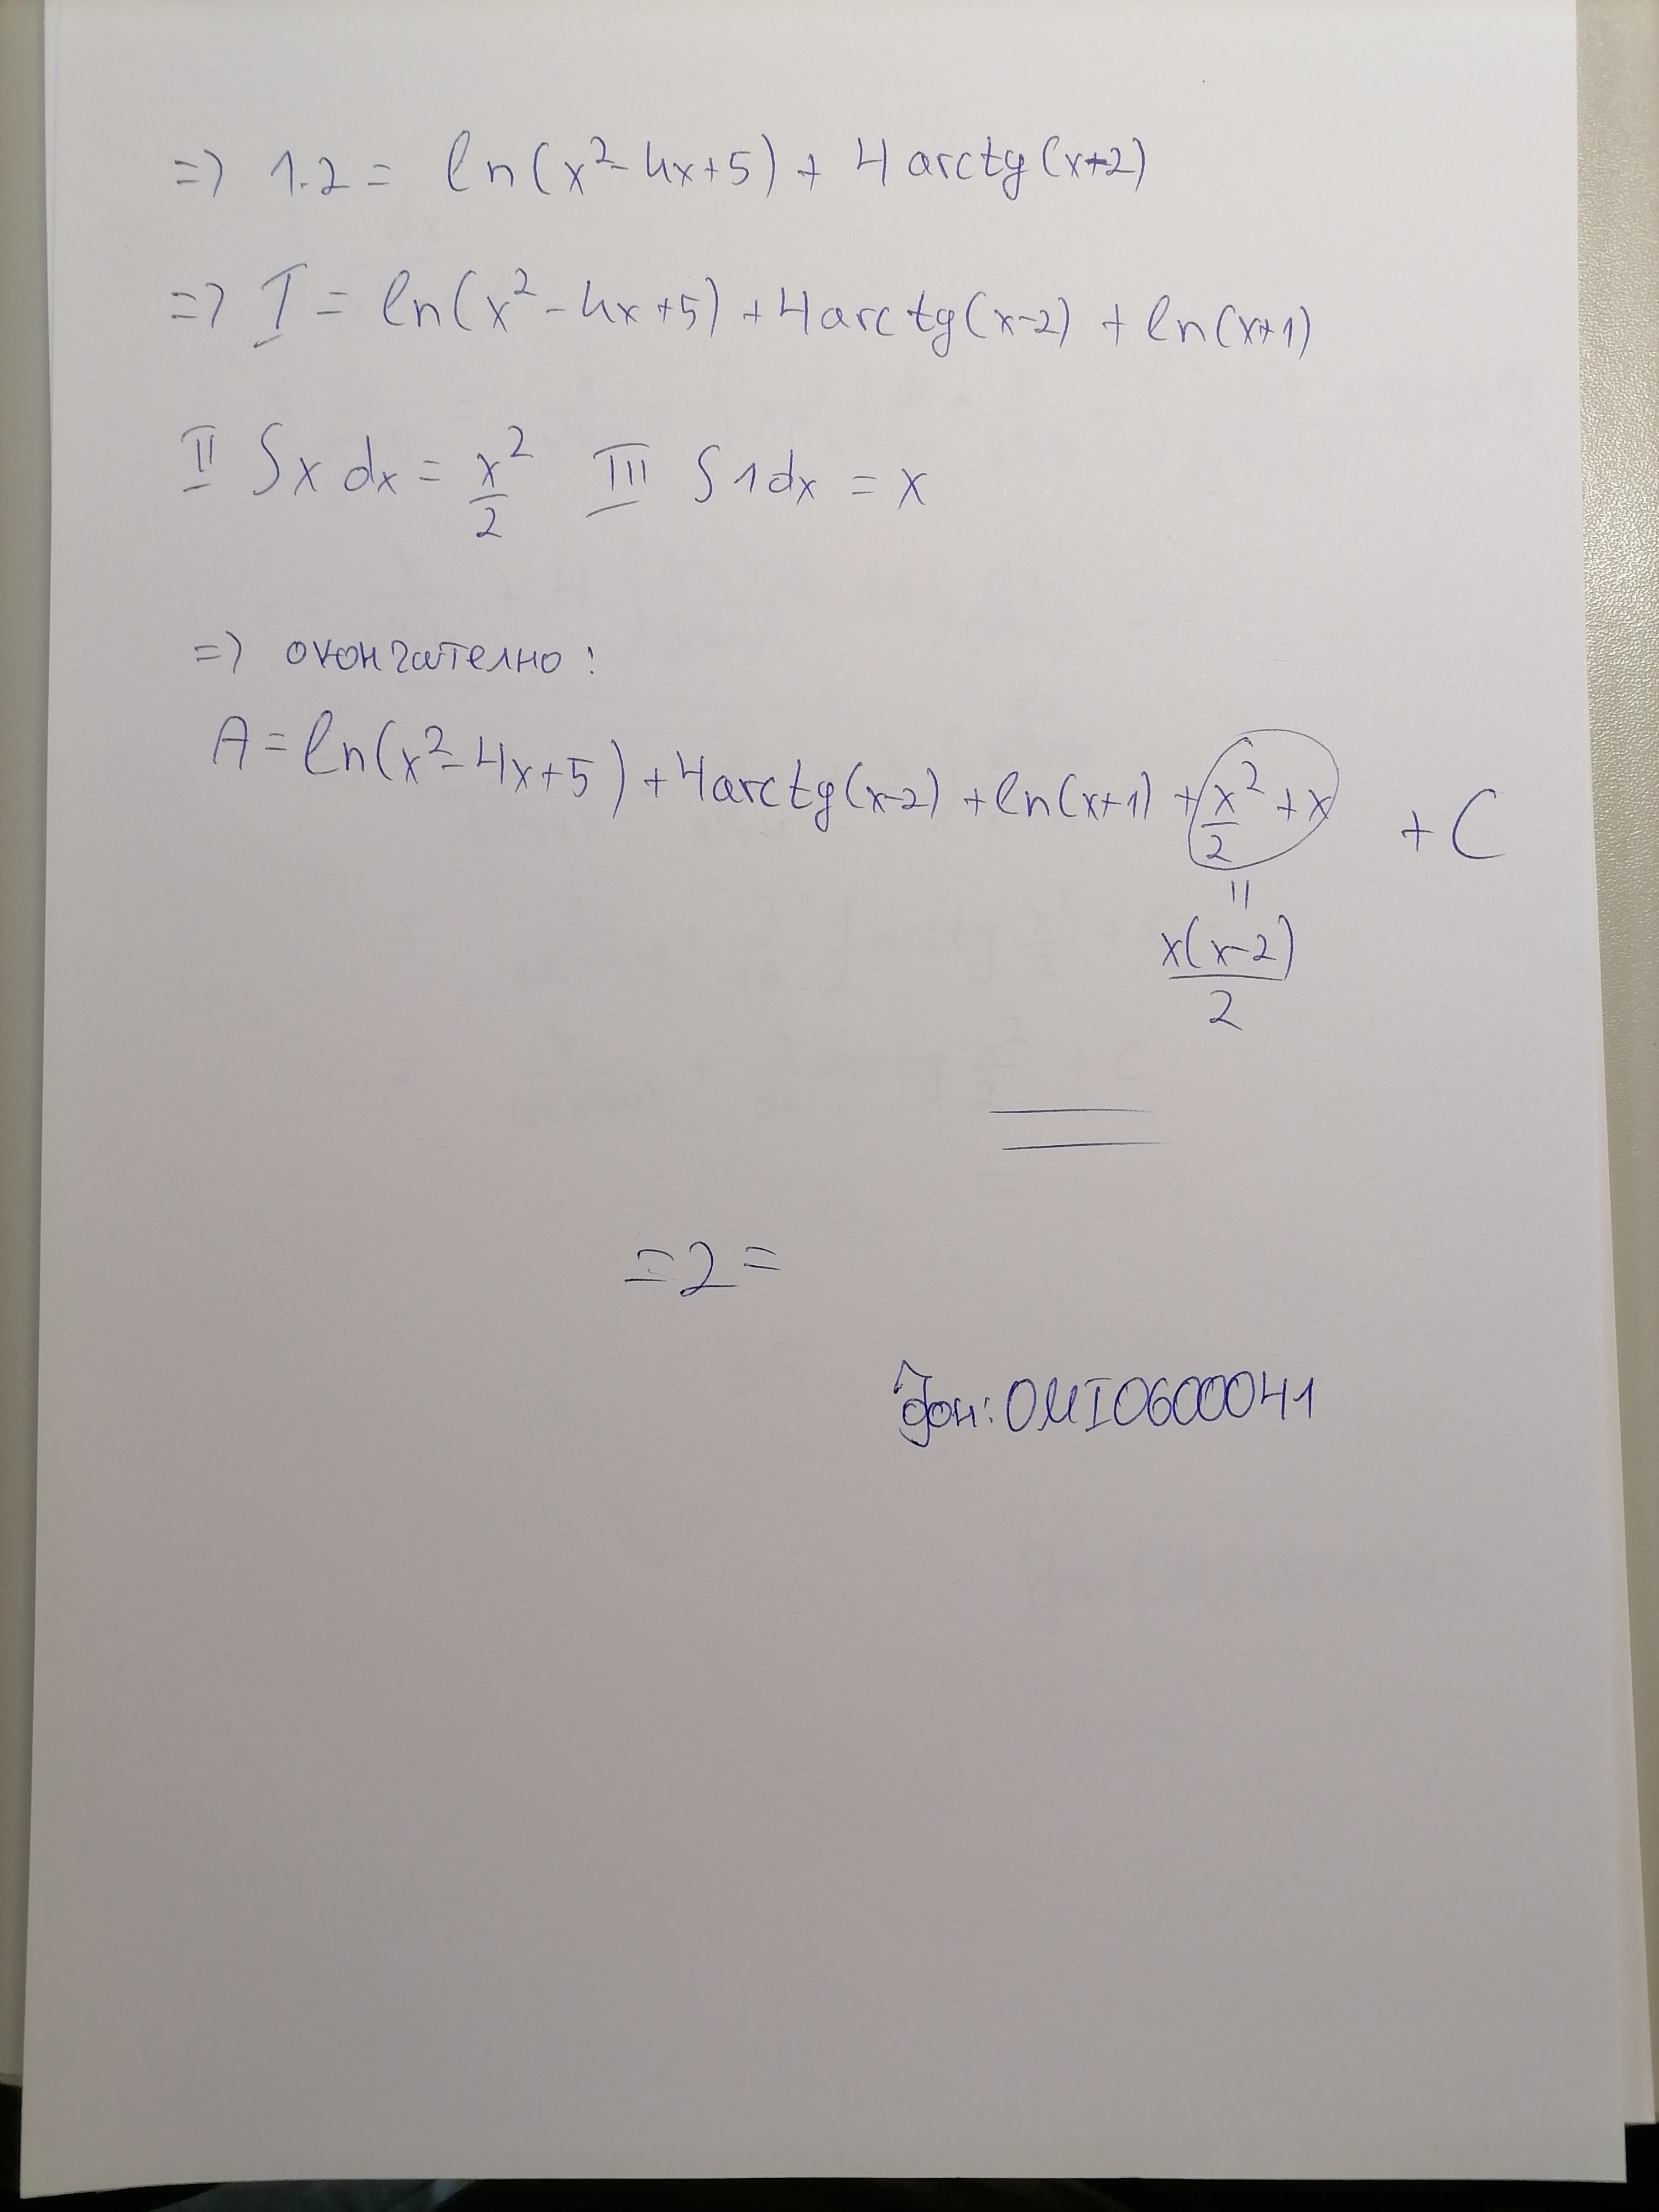 => 1.2 = ln(x²-4x+5) + 4 arctg(x-2)
=> I = ln(x²-4x+5) + 4 arctg(x-2) + ln(x+1)
II ∫x dx = x²/2 III ∫1dx = x
=> окончателно:
A = ln(x²-4x+5) + 4 arctg(x-2) + ln(x+1) + x²/2 + x + C
=
x(x-2)/2
=2=
0MI0600041